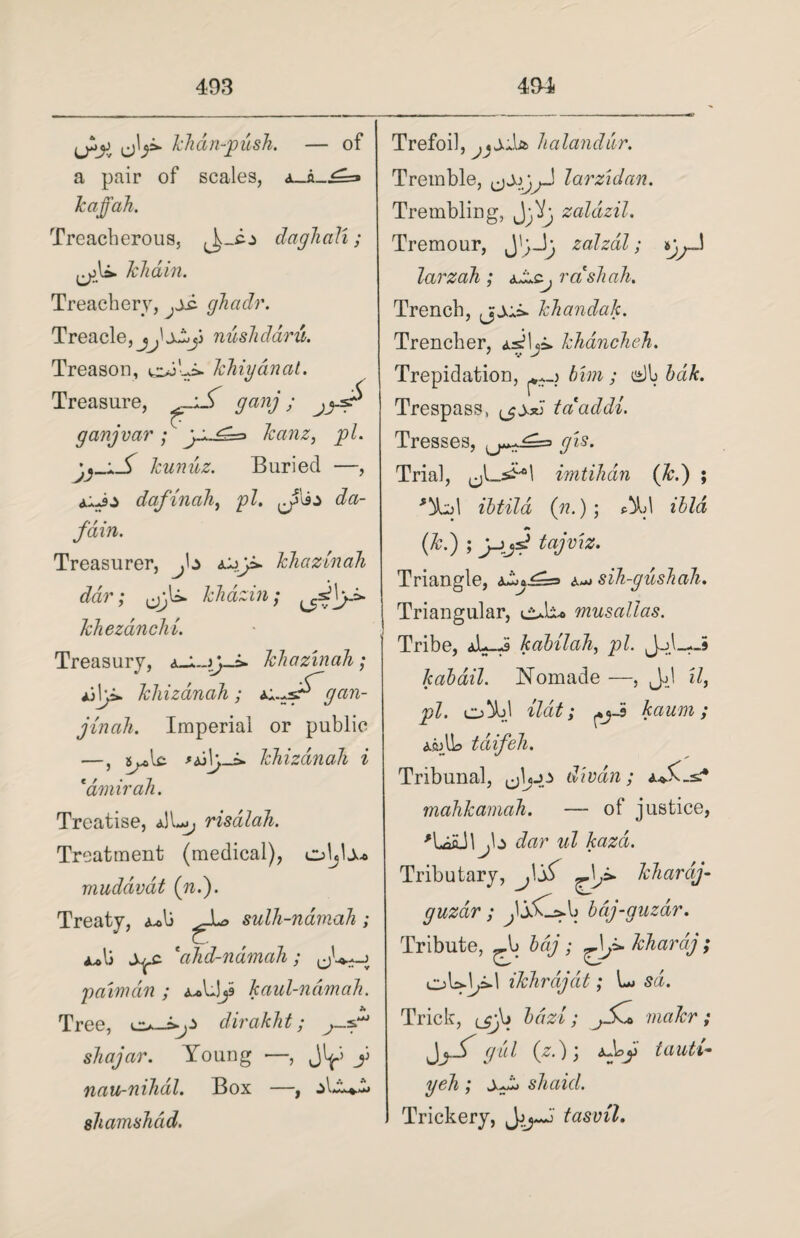 493
494
خوان پوش khán-púsh. — of
a pair of scales, كفه
kaffah.
Treacherous, دغلی daghali;
خاین kháin.
Treachery, غدر ghadr.
Treacle, نوشدارو núshdárú.
Treason, خیانت khiyánat.
Treasure, گنج ganj; گنجور
ganjvar; كنز kanz, pl.
كنوز kunúz. Buried —,
دفینه dafínah, pl. دفاین da-
fáin.
Treasurer, خزینه دار khazínah
dár; خازن kházin; خزانچی
khezánchí.
Treasury, خزینه khazínah;
خزانه khizánah; گنجینه gan-
jínah. Imperial or public
—, خزانهٔ عامره khizánah i
'ámirah.
Treatise, رساله risálah.
Treatment (medical), مداوات
mudávát (n.).
Treaty, صلح نامه sulh-námah;
عهد نامه 'ahd-námah; پیمان
paímán; قولنامه kaul-námah.
Tree, درخت dirakht; شجر
shajar. Young —, نو نهال
nau-nihál. Box —, شمشاد
shamshád.
Trefoil, هلندور halandúr.
Tremble, لرزیدن larzídan.
Trembling, زلازل zalázil.
Tremour, زلزال zalzál; لرزه
larzah; رعشه ra'shah.
Trench, خندق khandak.
Trencher, خوانچه kháncheh.
Trepidation, بیم bím; باك bák.
Trespass, تعدی ta'addí.
Tresses, گیس gís.
Trial, امتحان imtihán (k.);
ابتلاء ibtilá (n.); ابلاء iblá
(k.); تجویز tajvíz.
Triangle, سه گوشه sih-gúshah.
Triangular, مثلث musallas.
Tribe, قبیله kabílah, pl. قبایل
kabáil. Nomade —, ایل íl,
pl. ایلات ílát; قوم kaum;
طایفه táifeh.
Tribunal, دیوان díván; محکمه
mahkamah. — of justice,
دار القضاء dar ul kazá.
Tributary, خراج گذار kharáj-
guzár; باجگذار báj-guzár.
Tribute, باج báj; خراج kharáj;
اخراجات ikhrájat; سا sá.
Trick, بازی bází; مکر makr;
گول gúl (z.); توطیه tauti-
yeh; شید shaid.
Trickery, تسویل tasvíl.